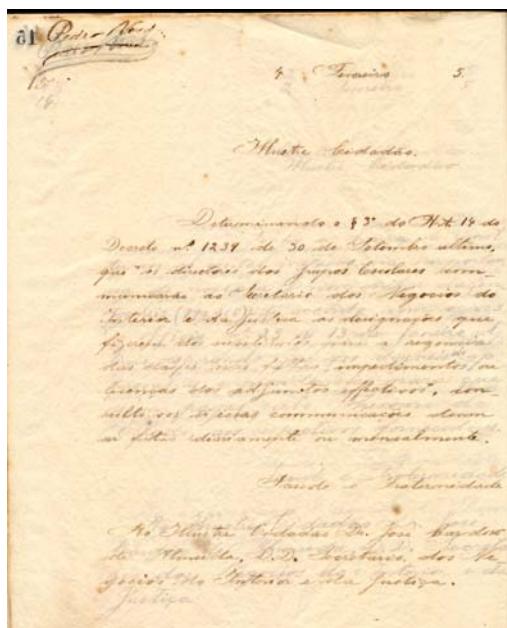 15 Pedro Voss
4 Fevereiro 5.
Illustre Cidadão.
Determinando o § 3º do Art. 14 do
Decreto nº 1239 de 30 de Setembro ultimo,
que "os directores dos Grupos Escolares com-
municarão ao Secretario dos Negocios do
Interior e da Justiça as designações que
fizerem de substitutos para a regencia
das classes nas faltas, impedimentos ou
licenças dos adjuntos effectivos", con-
sulto vos si essas communicações devem
ser feitas diariamente ou mensalmente.
Saude e Fraternidade
Ao Illustre Cidadão Dr. José Cardoso
de Almeida, D.D. Secretario dos Ne-
gocios do Interior e da Justiça.